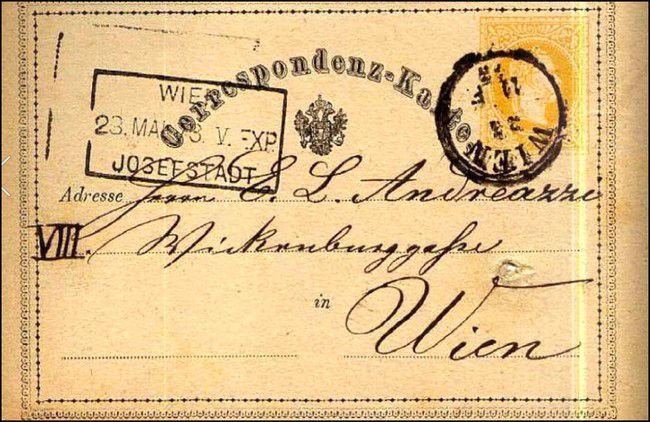 Correspondenz-Karte
WIEN
23. MAI 8. V. EXP.
JOSEFSTADT
WIEN
Adresse Herrn E. L. Andreazzi
VIII. Wickenburggasse
in
Wien